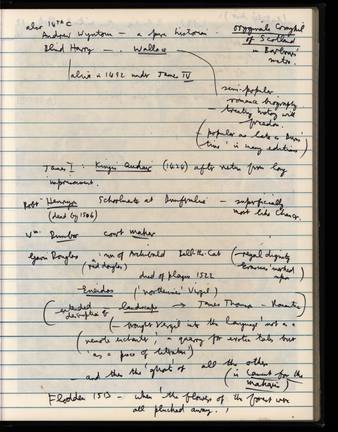 also 14th C
Andrew Wyntoun — a pure historian. Orygynale Cronykil
of Scotland
Blind Harry — . Wallace
in Barbour's
metre.
alive in 1492 under James IV
semi-popular
romance biography
treating history with
freedom.
(popular as late as Burns'
time in many editions)
James I : Kingis Quair (1424) after return from long
imprisonment.
Robt Henryson Schoolmaster at Dunfermline — superficially
(dead by 1506) most like Chaucer.
Wm Dunbar court makar
Gavin Douglas son of Archibald Bell-the-Cat
(red douglas)
died of plague 1522
Eneidos ('northernises' Vergil)
(extended landscape → James Thomson —
description of
(— brought Vergil into the language' not as a
remote enchanter, a quarry for exotic tales but
'as a piece of literature')
— and then the 'ghosts' of all the other
(in Lament for the
makaris)
Flodden 1513 — when 'the flowers of the forest were
all plucked away.'